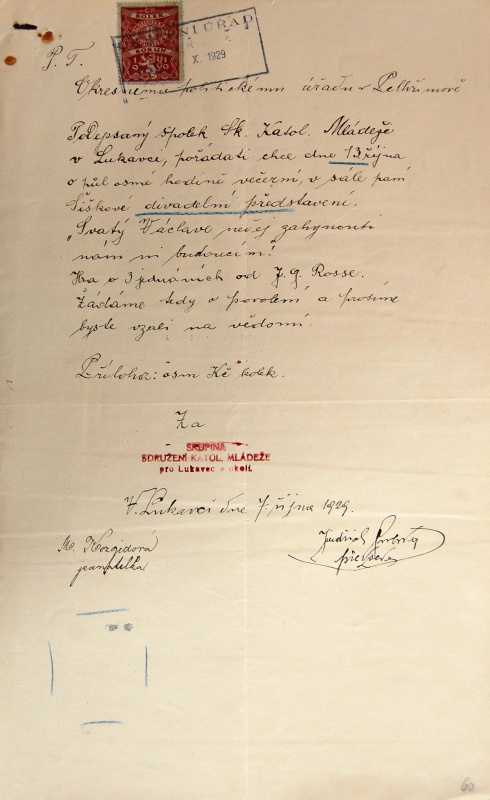 ÚŘAD
X. 1929
KOLEK
P. T.
Okresnímu politickému úřadu v Pelhřimově
Podepsaný spolek Sk. Katol. Mládeže
v Lukavci, pořádati chce dne 13. října
o půl osmé hodině večerní, v sále paní
Šiškové divadelní představení.
„Svatý Václave nedej zahynouti
nám ni budoucím!"
Hra o 3 jednáních od J. G. Rosse.
Žádáme tedy o povolení a prosíme
byste vzali na vědomí.
Příloha: osm Kč kolek.
Za
SKUPINA
SDRUŽENÍ KATOL. MLÁDEŽE
pro Lukavec a okolí.
V Lukavci dne 7. října 1929.
jednatelka
Jindřich
60